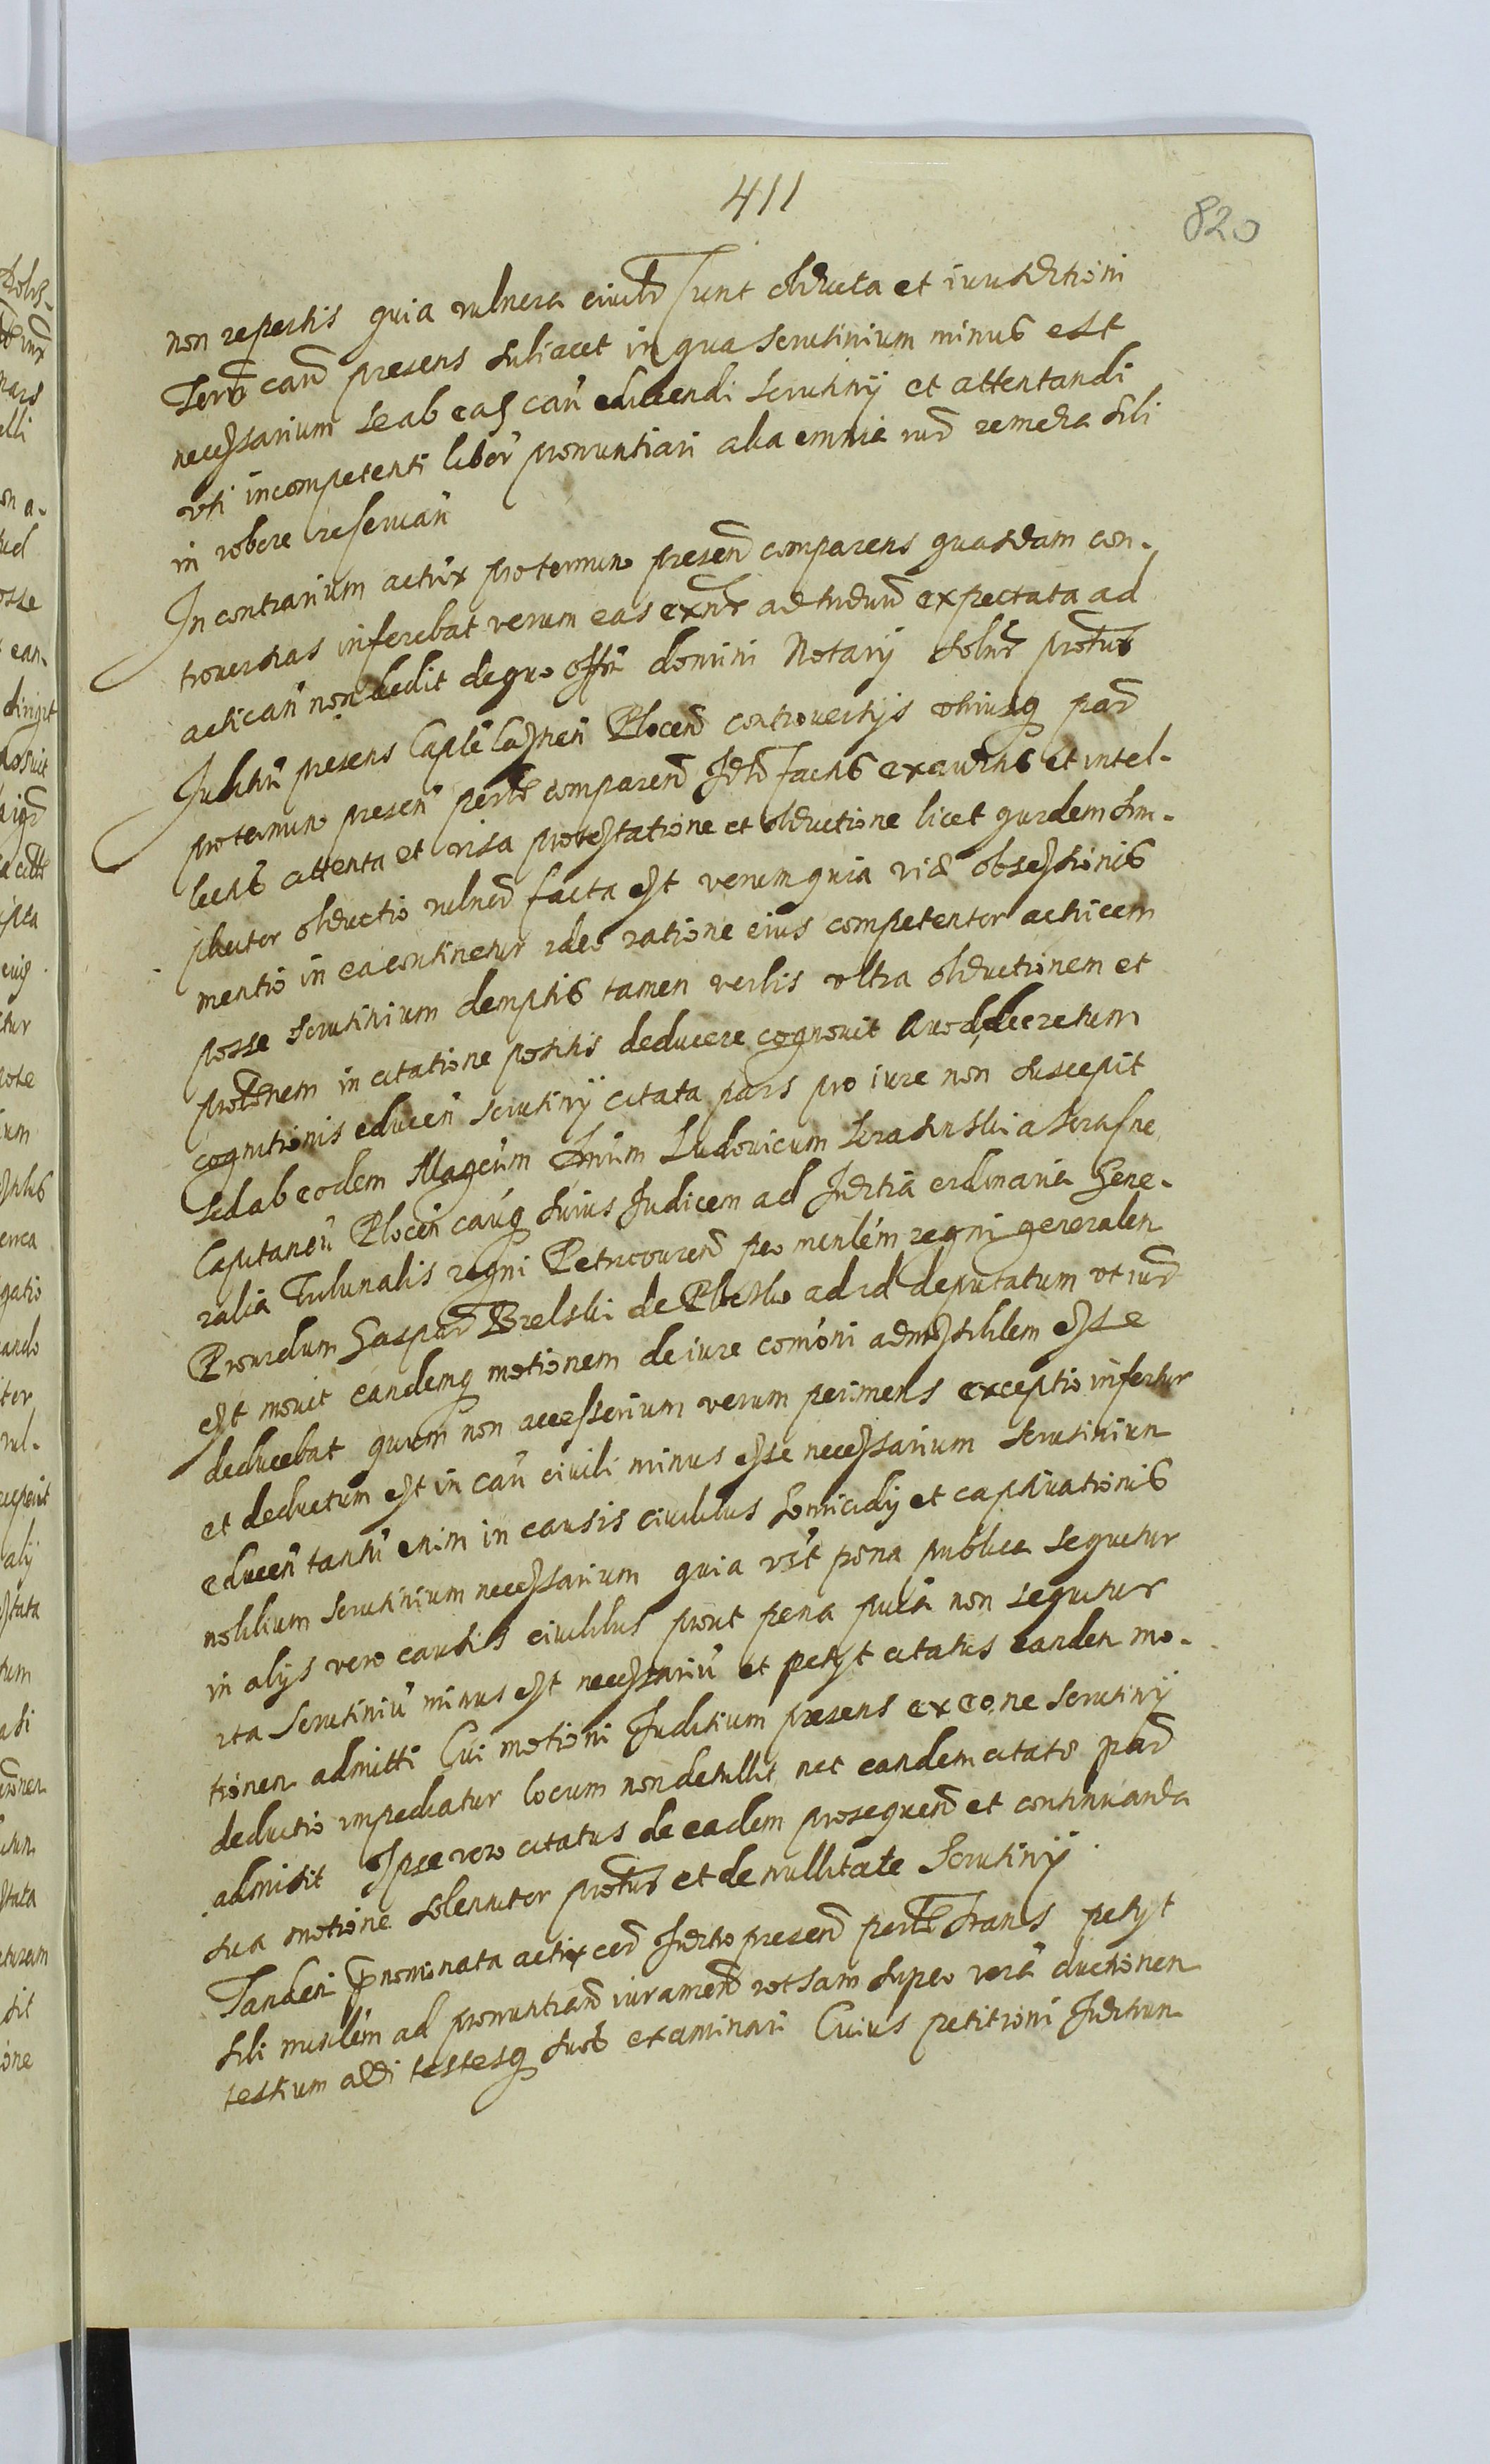 411
820
non repertis quia vulnera civilr sunt obducta et iurisdictioni
Terr caū presens subiacet in qua scrutinium minus est
necessarium se ab eaq caū educendi scrutinij et attentandi
uti incompetenti liber pronuntiari alia omnia iur remedia sibi
in robore reservan
In contrarium actrix pro termino presen comparens quasdam con-
troversias inferebat verum eas ad expectata ad
actican non dedit de quo offm domini Notarij solnr protus
Juditiū presens Caplē Castren Plocen controversijs utriusq par
pro termino presen perlr comparen factis exauditis et intel-
lectis attenta et visa protestatione et obductione licet quidem sim-
pliciter obductio vulner facta est verum quia viæ obsessionis
mentio in ea continetur ideo ratione eius competenter actricem
posse scrutinium demptis tamen verbis ultra obductionem et
protonem in citatione positis deducere cognovit Quod decretum
cognitionis educen scrutinij citata pars pro iure non suscepit
sed ab eodem Magcum Dnum Ludovicum Krasinski a Krasne
Capitaneū Plocen cauq huius Judicem ad Judtia ordinaria Gene-
ralia Tribunalis regni Petricovien per mrilem regni generalem
Providum Gaspar Brelski de ad id deputatum ut iur
est movit eandemq motionem de iure comoni admissibilem esse
deducebat quum non accessorium verum perimens exceptio infertur
et deductum est in caū civili minus esse necessarium scrutinium
educen tantū enim in causis civilibus homicidij et captivationis
nobilium scrutinium necessarium quia ubi pœna publica sequetur
in alijs vero causis civilibus prout pena puca non sequitur
ita scrutiniū minus est necessariū et petijt citatus eandem mo-
tionem admitti Cui motioni Juditium presens ex eo ne scrutinij
deductio impediatur locum non detullit nec eandem citato par
admisit Ipse vero citatus de eadem prosequen et continuanda
sua motione solenniter protus et de nullitate scrutinij
Tanden prenominata actrix cor Judtio presen perlr stans petijt
sibi mrilem ad pronuntian iuramen rotsam super verā ductionem
testium addi testesq suos examinari Cuius petitioni Judtium